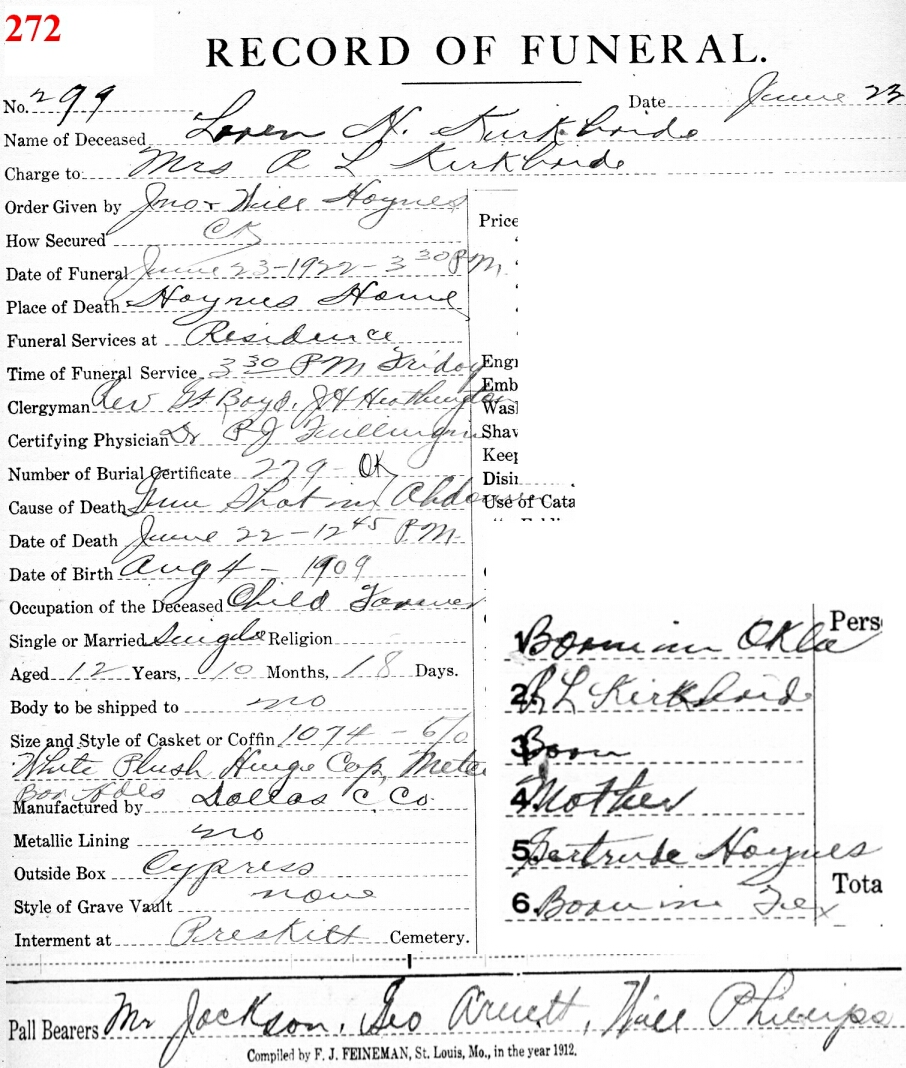 272
RECORD OF FUNERAL.
No. 299 Date June 23
Name of Deceased Loren N. Kirkbride
Charge to: Mrs R L Kirkbride
Order Given by Jno & Will Hoynes
How Secured
Date of Funeral June 23-1922-3 30 P.M.
Place of Death Hoynes Home
Funeral Services at Residence
Time of Funeral Service 3 30 P M Friday
Clergyman Rev Boyd, J H
Certifying Physician Dr P J Fullingim
Number of Burial Certificate 229 - OK
Cause of Death Gun Shot in
Date of Death June 22 - 12 45 P.M.
Date of Birth Aug 4 - 1909
Occupation of the Deceased Child Farmer
Single or Married Single Religion
Aged 12 Years, 10 Months, 18 Days.
Body to be shipped to no
Size and Style of Casket or Coffin 1074 - 5/0
White Plush Hinge Cap, Metal
Manufactured by Dallas C Co.
Metallic Lining no
Outside Box Cypress
Style of Grave Vault none
Interment at Preskitt Cemetery.
Price
Engr
Emb
Was
Shav
Keep
Disin
Use of Cata
Pers
1. Born in Okla
2. R L Kirkbride
3. Born
4. Mother
5. Gertrude Hoynes
6. Born in Tex
Tota
Pall Bearers Mr Jackson, Geo Arnett, Will Phillips
Compiled by F. J. FEINEMAN, St. Louis, Mo., in the year 1912.